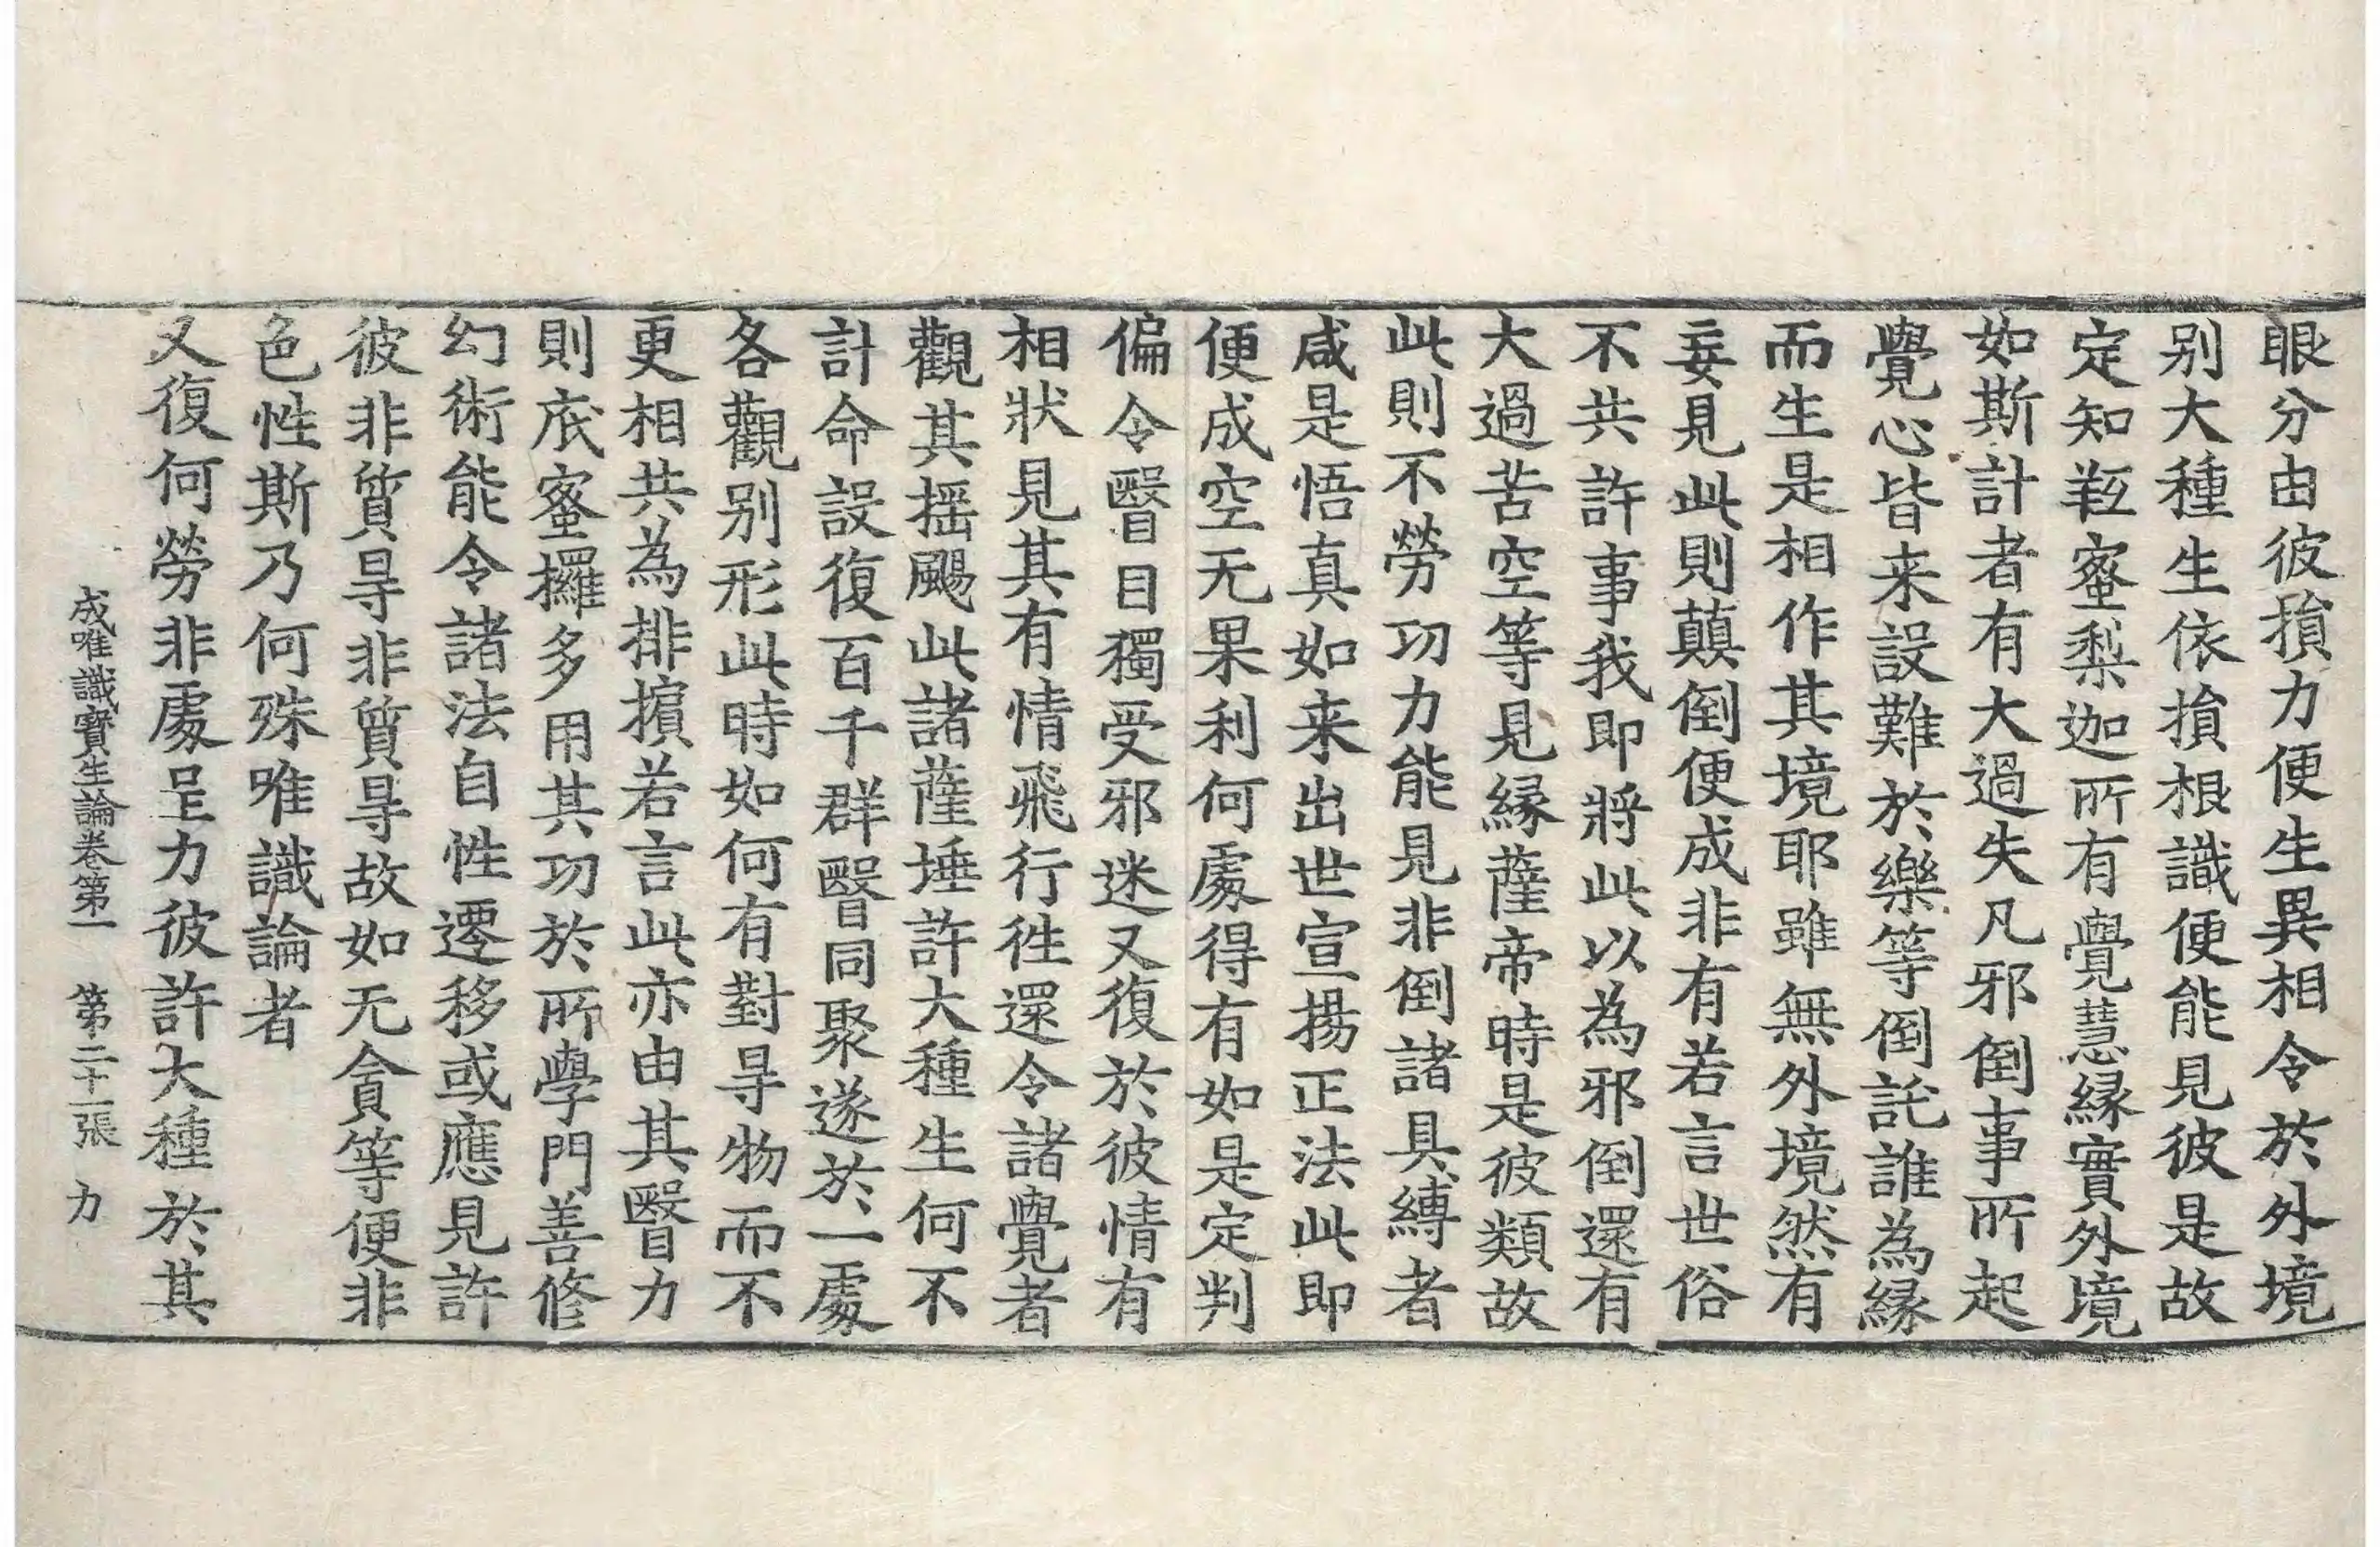 眼分由彼損力便生異相令於外境
别大種生依損根識便能見彼是故
定知羥蜜梨迦所有覺慧緣實外境
如斯計者有大過失凡邪倒事所起
覺心皆来設難於樂等倒託誰為緣
而生是相作其境耶雖無外境然有
妄見此則顛倒便成非有若言世俗
不共許事我即將此以為邪倒還有
大過苦空等見緣薩帝時是彼類故
此則不勞功力能見非倒諸具縛者
咸是悟真如来出世宣揚正法此即
便成空无果利何處得有如是定判
偏令瞖目獨受邪迷又復於彼情有
相狀見其有情飛行往還令諸覺者
觀其摇颺此諸薩埵許大種生何不
計命設復百千群瞖同聚遂於一處
各觀别形此時如何有對导物而不
更相共為排擯若言此亦由其瞖力
則底蜜攞多用其功於所學門善修
幻術能令諸法自性遷移或應見許
彼非質导非質导故如无貪等便非
色性斯乃何殊唯識論者
又復何勞非處呈力彼許大種於其
成唯識寶生論卷第一　第二十一張　力